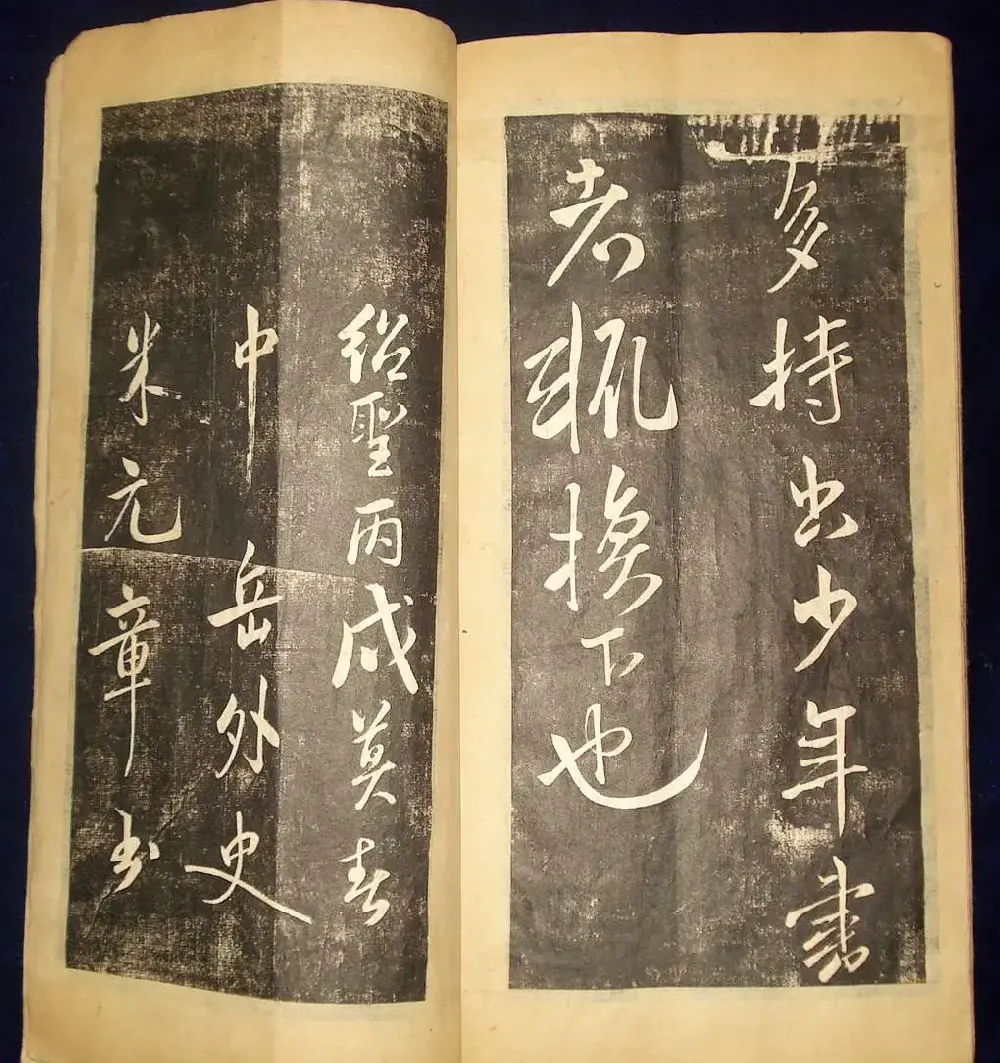 多持出少年書
者輒換下也
紹聖丙戌莫春
中岳外史
米元章書